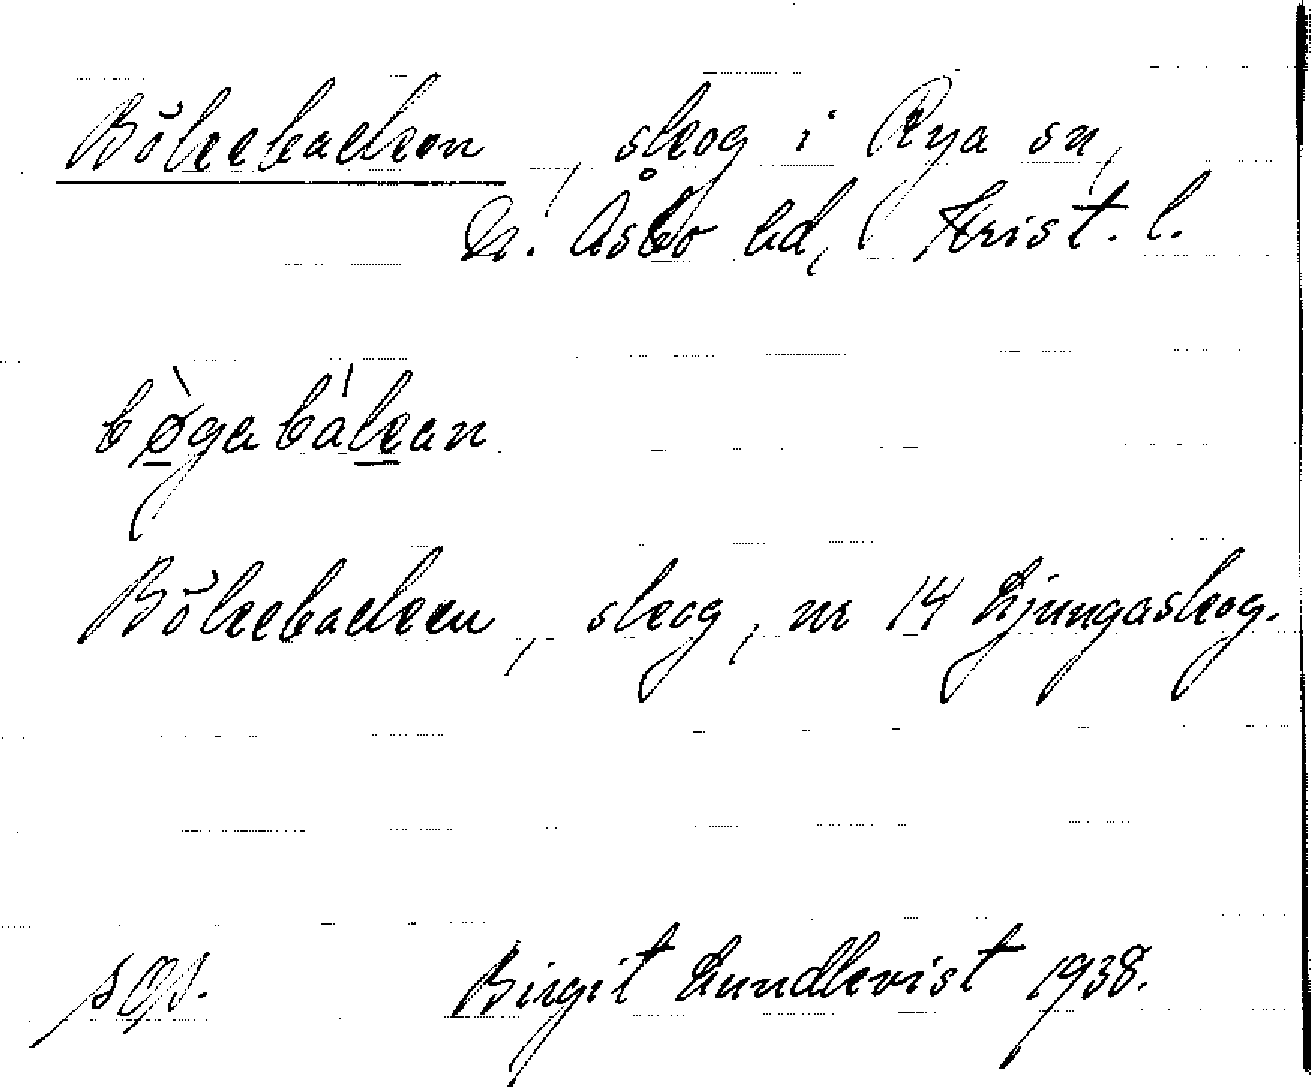 Bökebacken, skog i Rya sn,
N. Åsbo hd, Krist. l.
bø̀gabákan
Bökebacken, skog, nr 14 Ljungaskog.
sgs. Birgit Lundkvist 1938.